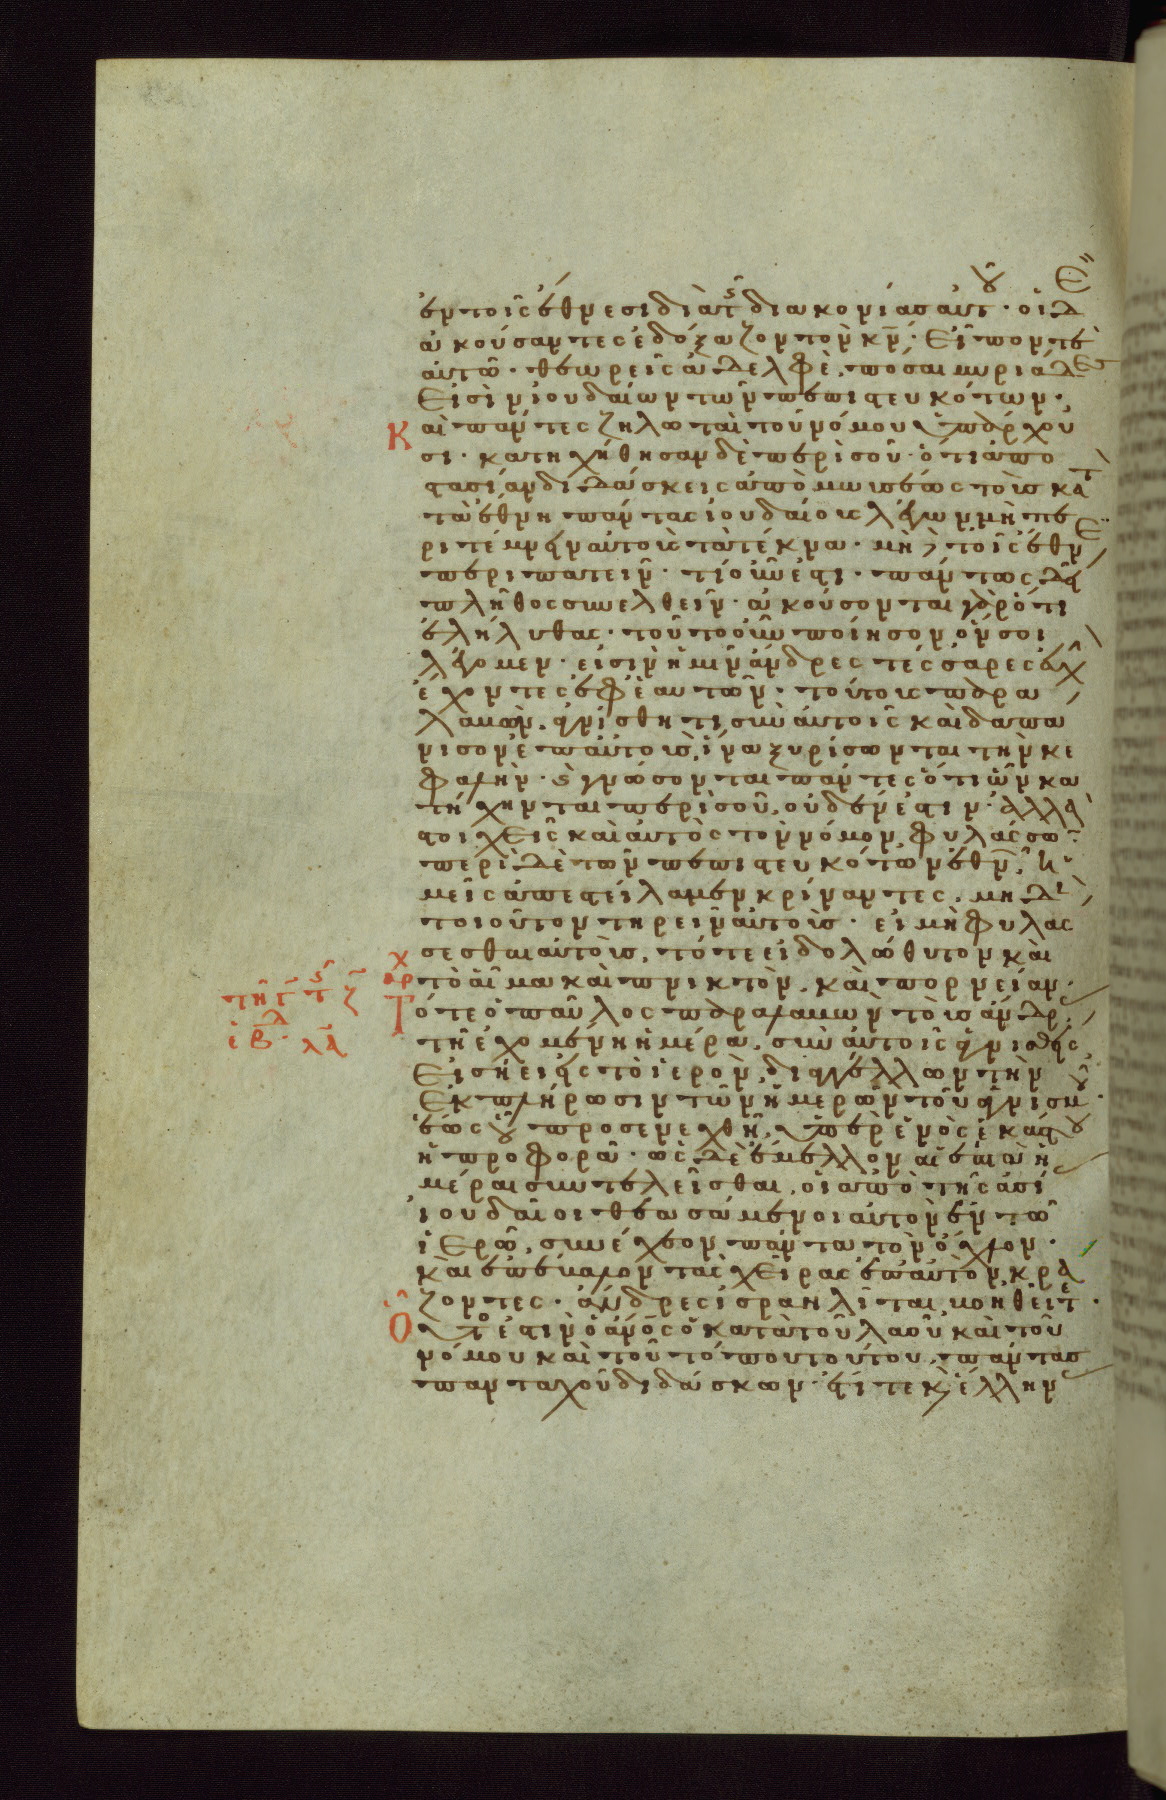 ἐν τοῖς ἔθνεσι διὰ τῆς διακονίας αὐτοῦ· οἱ δὲ
ἀκούσαντες ἐδόξαζον τὸν κ̅ν̅· Εἶπόν τε
αὐτῶ· θεωρεῖς ἀδελφὲ, πόσαι μυριάδες
Εἰσὶν ἰουδαίων τῶν πεπιστευκότων·
Καὶ πάντες ζηλωταὶ τοῦ νόμου ὑπάρχου
σι· κατηχήθησαν δὲ περὶ σοῦ· ὅτι ἀπο
στασίαν διδάσκεις ἀπὸ μωϋσέως τοὺς κατὰ
τὰ ἔθνη πάντας ἰουδαίους λέγων μὴ πε
ριτέμνειν αὐτοὺς τὰ τέκνα· μὴδὲ τοῖς ἔθεσιν
περιπατεῖν· τί οὖν ἐστι· πάντως δεῖ
πλῆθος συνελθεῖν· ἀκούσονται γὰρ ὅτι
ἐλήλυθας· τοῦτο οὖν ποίησον ὅ σοι
λέγομεν· εἰσὶν ἡμῖν ἄνδρες τέσσαρες εὐχὴν
ἔχοντες ἐφ' ἑαυτῶν· τούτους παρα
λαβὼν, ἁγνίσθητι σὺν αὐτοῖς καὶ δαπά
νησον ἐπ' αὐτοῖς, ἵνα ξυρίσωνται τὴν κε
φαλήν· καὶ γνώσονται πάντες ὅτι ὧν κα
τήχηνται περὶ σοῦ, οὐδέν ἐστιν· ἀλλὰ
στοιχεῖς καὶ αὐτὸς τὸν νόμον φυλάσσων·
περὶ δὲ τῶν πεπιστευκότων ἐθνῶν, ἡ
μεῖς ἀπεστείλαμεν κρίναντες, μηδὲν
τοιοῦτον τηρεῖν αὐτοὺς· εἰ μὴ φυλάσ
σεσθαι αὐτοὺς, τό τε εἰδολόθυτον καὶ
τὸ αἷμα καὶ πνικτὸν, καὶ πορνείαν·
Τότε ὁ παῦλος παραλαβὼν τοὺς ἄνδρας,
τῆ ἐχομένη ἡμέρα, σὺν αὐτοῖς ἁγνισθεὶς
Εἰσήει εἰς τὸ ἱερὸν, διαγγέλλων τὴν
Ἐκπλήρωσιν τῶν ἡμερῶν τοῦ ἁγνισμοῦ·
ἕως οὗ προσενέχθη, ὑπὲρ ἑνὸς ἑκάστου
ἡ προσφορά· ὡς δὲ ἔμελλον αἱ ἑπτὰ ἡ
μέραι συντελεῖσθαι, οἱ ἀπὸ τῆς ἀσίας
ἰουδαῖοι θεασάμενοι αὐτὸν ἐν τῶ
ἱερῶ, συνέχεον πάντα τὸν ὄχλον·
καὶ ἐπέβαλον τὰς χεῖρας ἐπ' αὐτὸν, κρά
ζοντες· ἄνδρες ἰσραηλῖται, βοηθεῖτε·
Οὗτός ἐστιν ὁ ἄν̅ος ὁ κατὰ τοῦ λαοῦ καὶ τοῦ
νόμου καὶ τοῦ τόπου τούτου, πάντας
πανταχοῦ διδάσκων· ἔτι τε καὶ ἕλλην